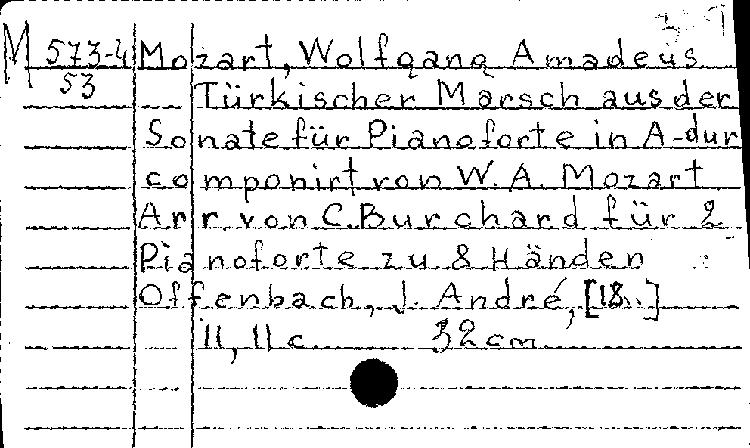 M 573-4 Mozart, Wolfgang Amadeus
53 Türkischer Marsch aus der
Sonate für Pianoforte in A-dur
componirt von W. A. Mozart
Arr. von C. Burchard für 2
Pianoforte zu 8 Händen
Offenbach, J. André, [18..]
11, 11 c. 32 cm